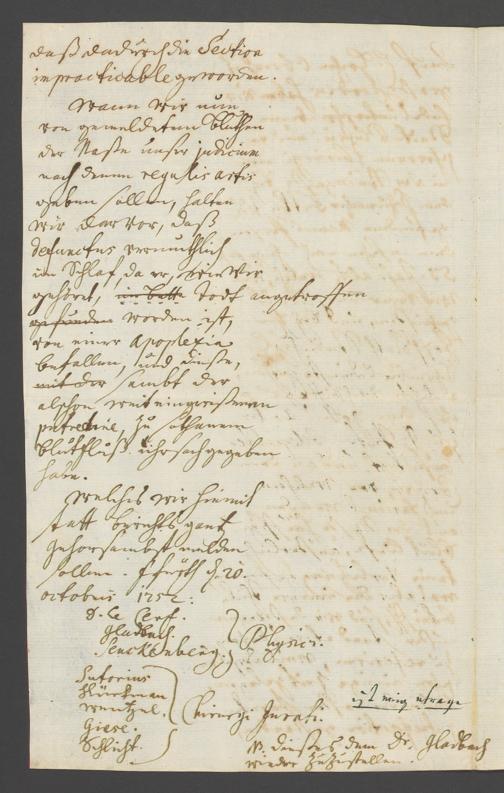 daß dadurch die Section
impracticable geworden.
Wann wir nun
von gemeldetem bluthen
der Naße unser judicium
nach denen regulis artis
geben sollen, halten
wir darvor, daß
Defunctus vermuthlich
im Schlaf, da er, wie wir
gehöret, im Bette Todt angetroffen
gefunden worden ist,
von einer Apoplexia
befallen, und diese,
mit der sambt der
alschon weit eingerißenen
putredine, zu sothanem
blutfluß uhrsach gegeben
habe.
Welches wir hiemit
statt berichts gantz
gehorsambst melden
sollen. Ffurth d. 20.
octobris 175
D. Le Cerf.
Gladbach.
Senckenberg.
Physici.
Sutorius
Wentzel.
Giese.
Schlicht.
Chirurgi Jurati.
NB. dieses dem Dr. Gladbach
wieder zuzustellen.